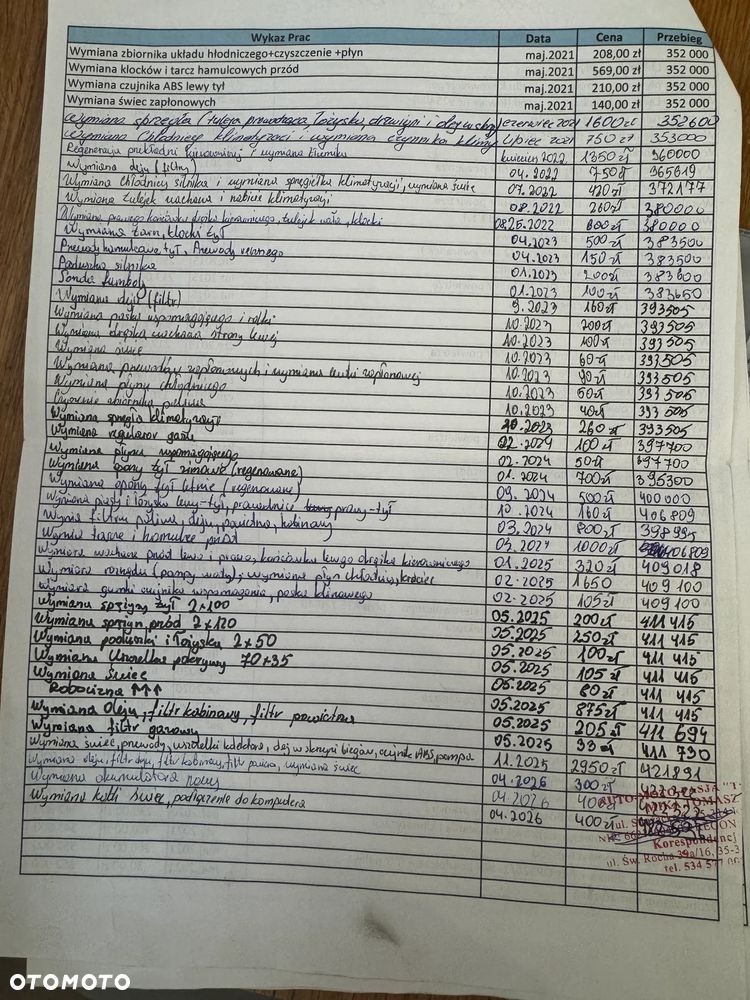 Wykaz Prac Data Cena Przebieg
Wymiana zbiornika układu hłodniczego+czyszczenie +płyn maj.2021 208,00 zł 352 000
Wymiana klocków i tarcz hamulcowych przód maj.2021 569,00 zł 352 000
Wymiana czujnika ABS lewy tył maj.2021 210,00 zł 352 000
Wymiana świec zapłonowych maj.2021 140,00 zł 352 000
Wymiana sprzęgła czerwiec 2021 1600 zł 352600
Wymiana Chłodnicy klimatyzacji i wymiana czynnika klimy Lipiec 2021 750 zł 353000
Regeneracja przekładni kierowniczej i wymiana kwiecień 2022 1350 zł 360000
Wymiana oleju (filtry) 04.2022 750 zł 365619
Wymiana chłodnicy silnika i wymiana sprzęgiełka klimatyzacji, wymiana świec 07.2022 420 zł 372177
Wymiana tulejek wachacza i nabicie klimatyzacji 08.2022 260 zł 380000
Wymiana prawego końcówka drążka kierowniczego, tulejek wala, klocki 0825.2022 600 zł 380000
Wymiana tarcz, klocki tył 04.2023 500 zł 383500
Przewody hamulcowe tył, Przewody 04.2023 150 zł 383500
Poduszka silnika 01.2023 200 zł 383600
Sonda lambda 01.2023 100 zł 383650
Wymiana oleju (filtr) 9.2023 160 zł 393505
Wymiana paska wspomagającego i rolki 10.2023 200 zł 393505
Wymiana drążka wachacza strony lewej 10.2023 100 zł 393505
Wymiana świec 10.2023 60 zł 393505
Wymiana przewodów zapłonowych i wymiana cewki zapłonowej 10.2023 90 zł 393505
Wymiana płynu chłodniczego 10.2023 50 zł 393505
zbiornika paliwa 10.2023 40 zł 393505
Wymiana sprzęgła klimatyzacji 10.2023 260 zł 393505
Wymiana regulator gazu 02.2024 100 zł 397700
Wymiana płynu wspomagającego 02.2024 50 zł 397700
Wymiana opony tył zimowe (regenerowane) 01.2024 700 zł 396300
Wymiana opony tył letnie (regenerowane) 09.2024 500 zł 400000
Wymiana piasty i łożyska lewy-tył, prowadnice prawy-tył 10.2024 160 zł 406809
Wymia filtru paliwa, oleju, powietrza, kabinowy 03.2024 800 zł 398995
Wymia tarcze i hamulce przód 03.2024 1000 zł 406809
Wymiana wachacz przód lewa i prawa, końcówka lewego drążka kierowniczego 01.2025 320 zł 409018
Wymiana rozrządu (pompy wody), wymiana płyn chłodniczy, króciec 02.2025 1650 409100
Wymiana gumki czujnika wspomagania, paska klinowego 02.2025 105 zł 409100
Wymiana sprężyny tył 2x100 05.2025 200 zł 411 415
Wymiana sprężyn przód 2x120 05.2025 250 zł 411 415
Wymiana poduszki i łożyska 2x50 05.2025 100 zł 411 415
Wymiana Uszczelka pokrywy 70+35 05.2025 105 zł 411 415
Wymiana Świec 05.2025 80 zł 411 415
Robocizna ↑↑↑ 05.2025 875 zł 411 415
Wymiana Oleju, filtr kabinowy, filtr powietrza 05.2025 205 zł 411 694
Wymiana filtr gazowy 05.2025 33 zł 411 730
Wymiana świec, przewody, uszczelki kolektora, olej w skrzyni biegów, czujnik ABS, pompa 11.2025 2950 zł 421831
Wymiana oleju, filtr oleju, filtr kabinowy, filtr powietrza, wymiana świec 04.2026 300 zł
Wymiana akumulatora nowy 04.2026 400
Wymiana kabli świec, podłączenie do komputera 04.2026 400 zł
TOMASZ
Korespondencj
ul. Św. Rocha 39a/16, 35-3
tel. 534 577
OTOMOTO